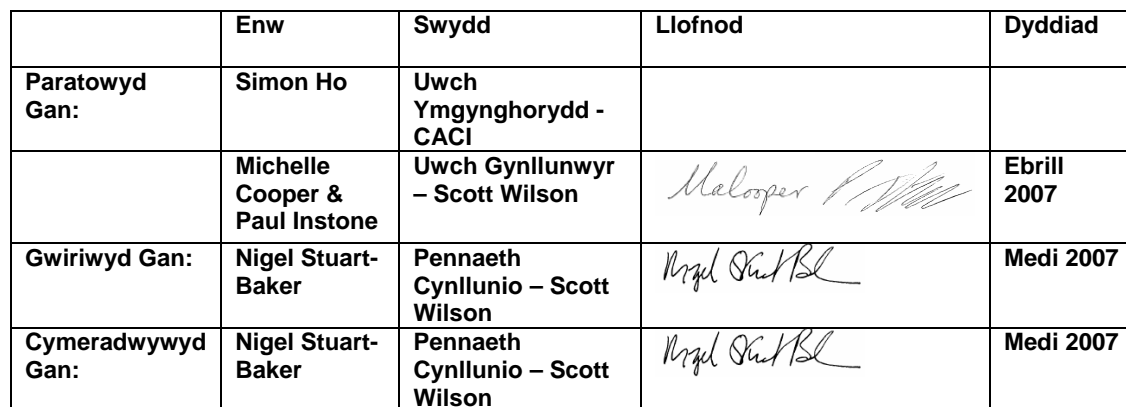 Enw Swydd Llofnod Dyddiad
Paratowyd Gan: Simon Ho Uwch Ymgynghorydd - CACI
Michelle Cooper & Paul Instone Uwch Gynllunwyr – Scott Wilson Ebrill 2007
Gwiriwyd Gan: Nigel Stuart-Baker Pennaeth Cynllunio – Scott Wilson Medi 2007
Cymeradwywyd Gan: Nigel Stuart-Baker Pennaeth Cynllunio – Scott Wilson Medi 2007